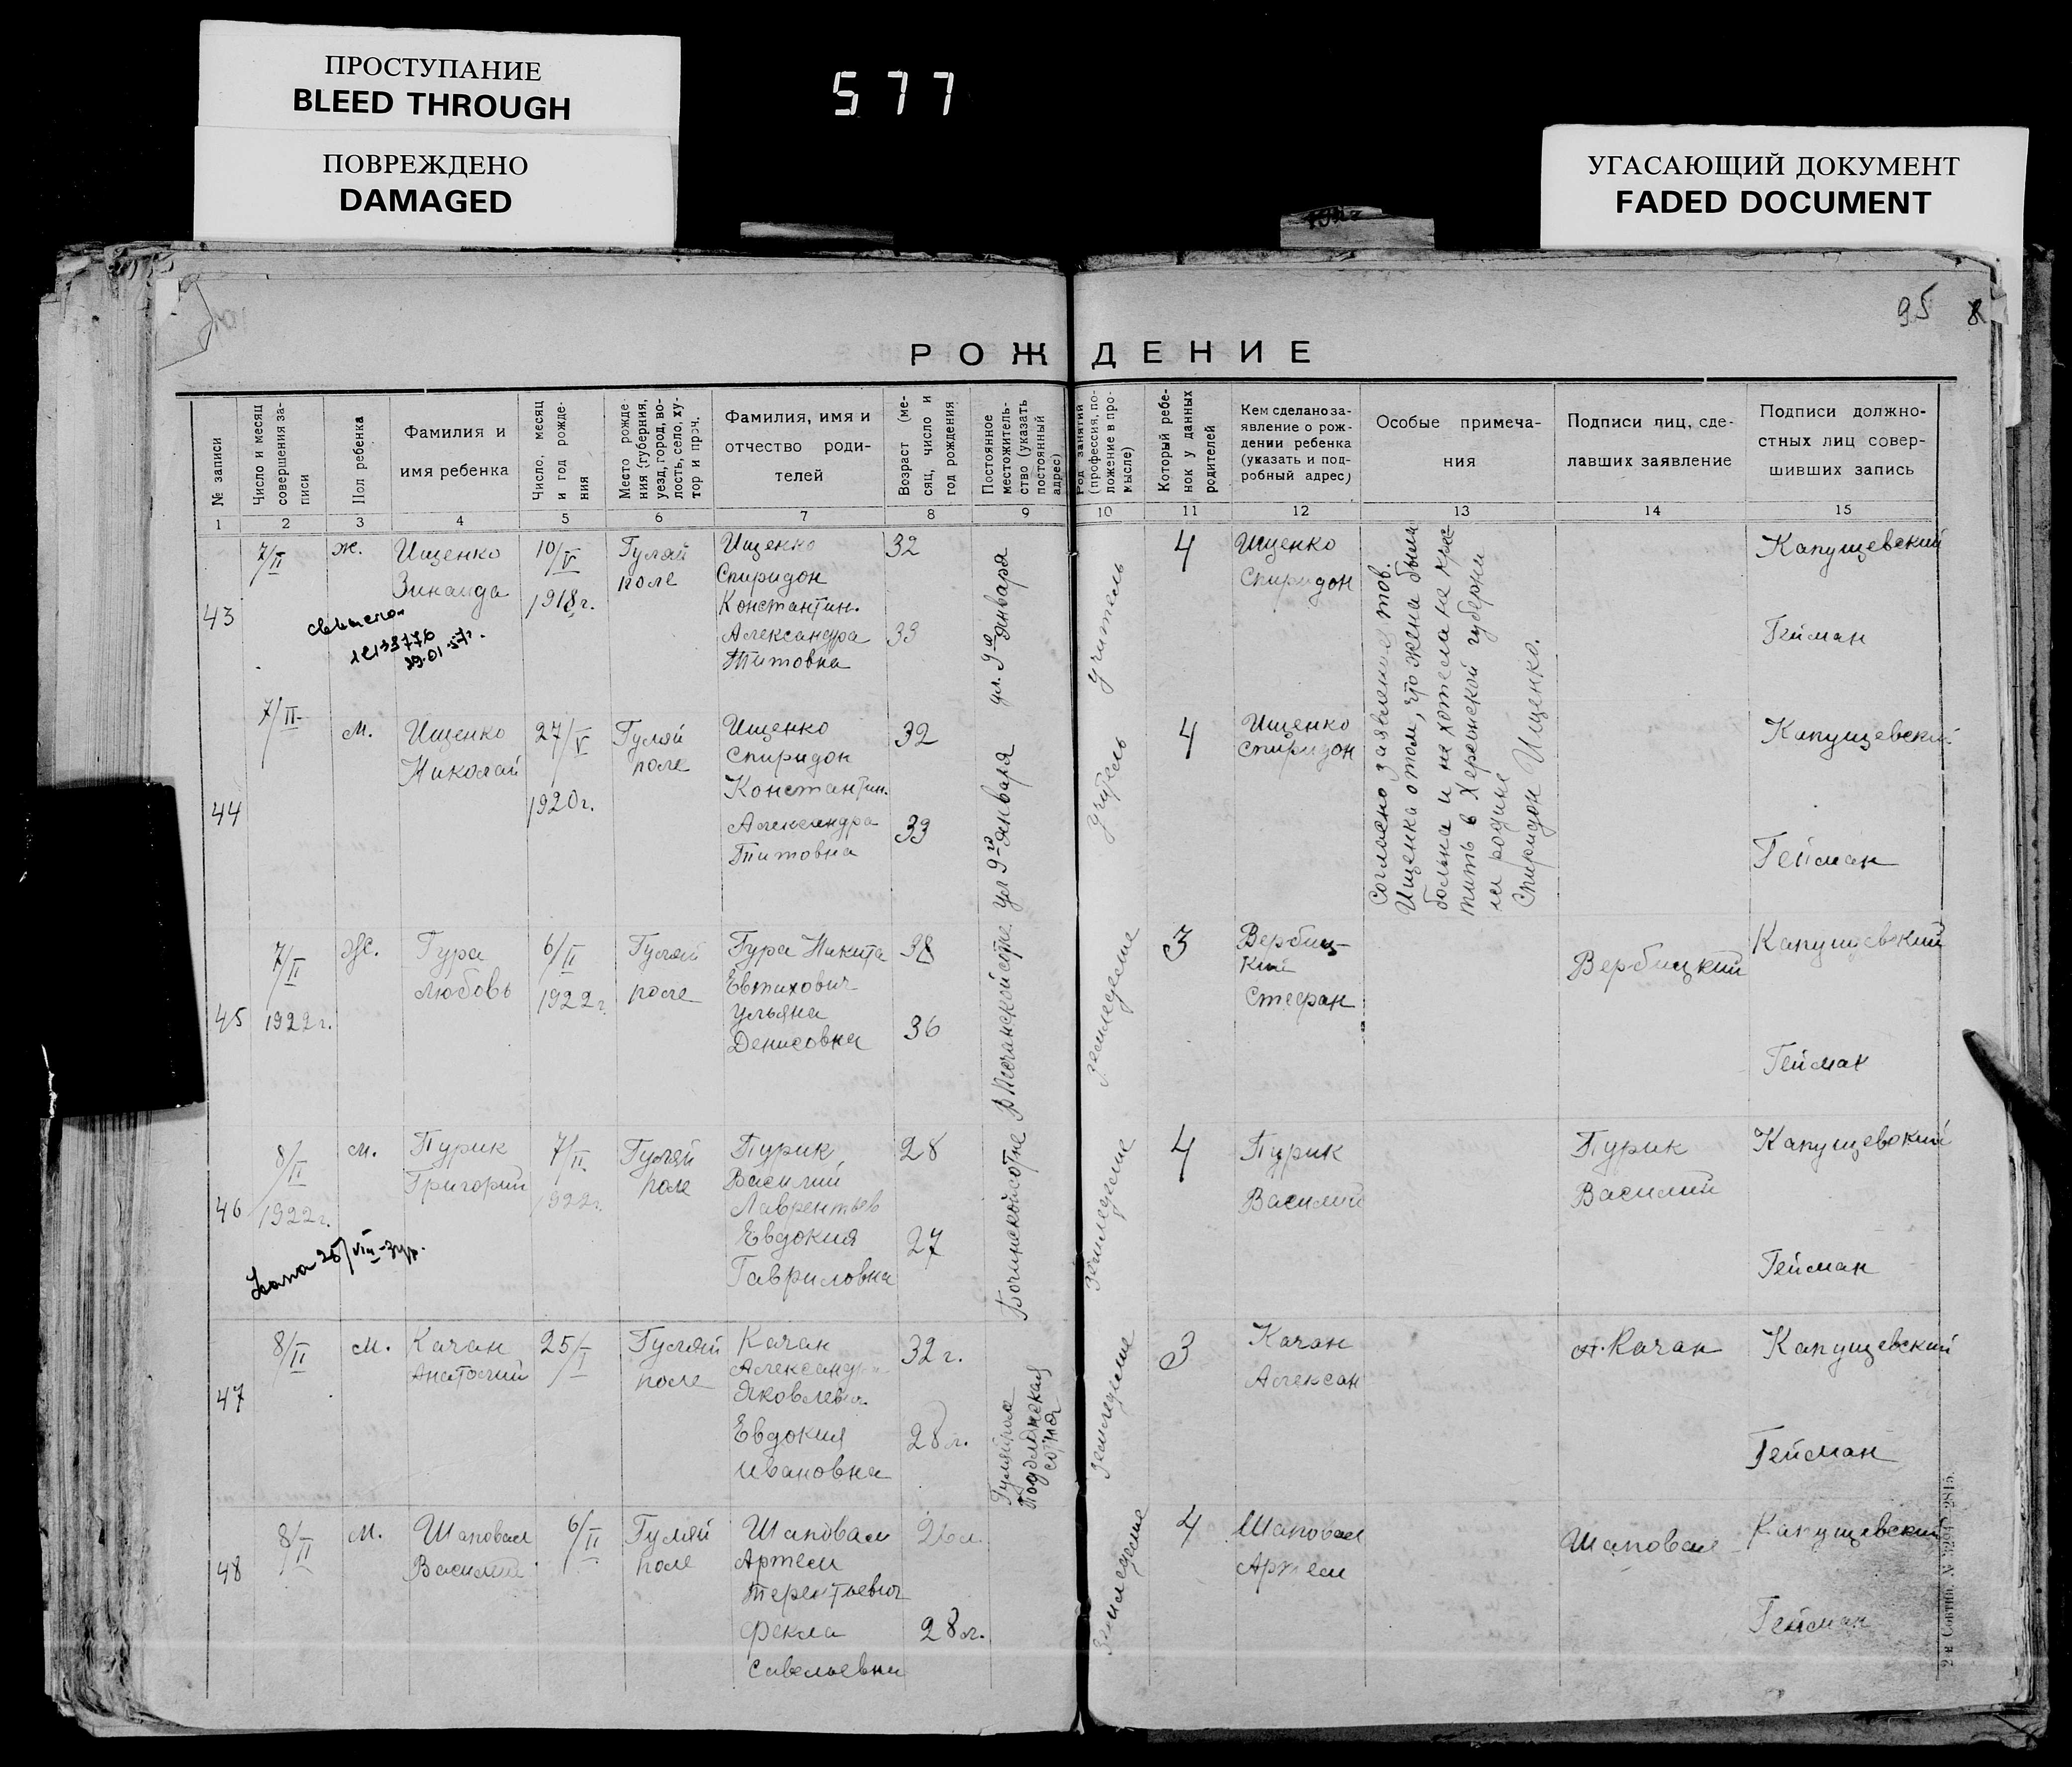 ПРОСТУПАНИЕ
BLEED THROUGH
ПОВРЕЖДЕНО
DAMAGED
577
УГАСАЮЩИЙ ДОКУМЕНТ
FADED DOCUMENT
95
8
РОЖДЕНИЕ
№ записи
Число и месяц
совершения за-
писи
Пол ребенка
Фамилия и
имя ребенка
Число, месяц
и год рожде-
ния
Место рожде
ния (губерния,
уезд, город, во-
лость, село, ху-
тор и проч.
Фамилия, имя и
отчество роди-
телей
Возраст (ме-
сяц, число и
год рождения
Постоянное
местожитель-
ство (указать
постоянный
адрес)
Род занятий
(профессия, по-
ложение в про-
мысле)
Который ребе-
нок у данных
родителей
Кем сделано за-
явление о рож-
дении ребенка
(указать и под-
робный адрес)
Особые примеча-
ния
Подписи лиц, сде-
лавших заявление
Подписи должно-
стных лиц совер-
шивших запись
1
2
3
4
5
6
7
8
9
10
11
12
13
14
15
43
7/II
ж.
Ищенко
Зинаида
10/V
1918г.
Гуляй
поле
Ищенко
Спиридон
Константин.
Александра
Титовна
32
33
ул. 9го января
учитель
4
Ищенко
Спиридон
Согласно заявления тов.
Ищенка о том, что жена была
больна и не хотела на
в Херсонской губерни
на родине
Спиридон Ищенко.
Капущевский
Гейман
29.01.57г.
44
7/II
м.
Ищенко
Николай
27/V
1920г.
Гуляй
поле
Ищенко
Спиридон
Константин.
Александра
Титовна
32
33
ул 9го января
учитель
4
Ищенко
Спиридон
Капущевский
Гейман
45
7/II
1922г.
Ж.
Гура
Любовь
6/II
1922г.
Гуляй
поле
Гура Никита
Евтихович
Ульяна
Денисовна
38
36
В Песчанской сотне
земледелие
3
Вербиц-
кий
Стефан
Вербицкий
Капущевский
Гейман
46
8/II
1922г.
м.
Пурик
Григорий
7/II
1922г.
Гуляй
поле
Пурик
Василий
Лаврентьев
Евдокия
Гавриловна
28
27
Бочанской сотне
земледелие
4
Пурик
Василий
Пурик
Василий
Капущевский
Гейман
47
8/II
м.
Качан
Анатолий
25/I
Гуляй
поле
Качан
Александр
Яковлевич
Евдокия
Ивановна
32г.
28л.
Гуляйполе
сотня
земледелие
3
Качан
Алексан
А. Качан
Капущевский
Гейман
48
8/II
м.
Шаповал
Василий
6/II
Гуляй
поле
Шаповал
Артем
Терентьевич
Фекла
Савельевна
26л.
28л.
земледелие
4
Шаповал
Артем
Шаповал
Капущевский
Гейман